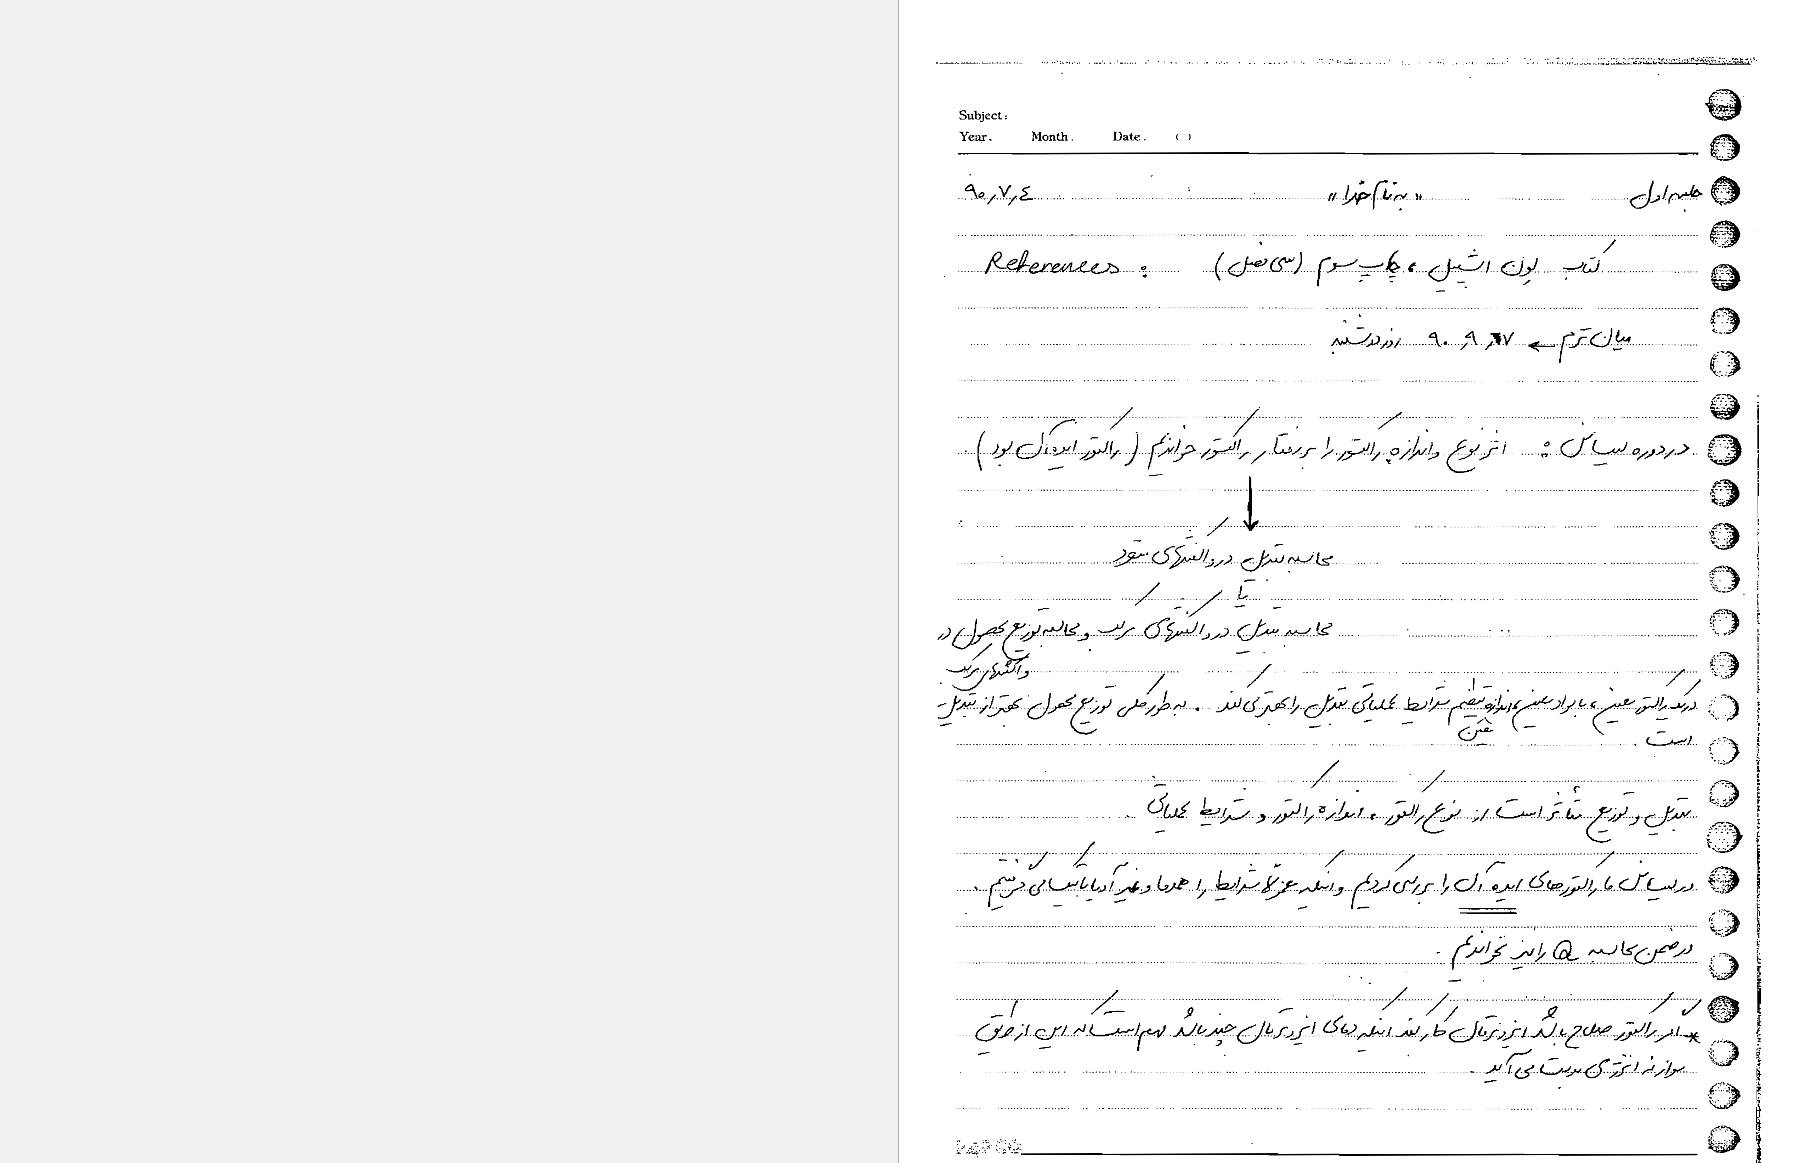 Subject:
Year. Month. Date. ( )
جلسه اول «به نام خدا» ۹۰,۷,٤
References : کتاب لون اشپیل ، چاپ سوم (سی فصل)
میان ترم ← ۹۰,۹,۷ روز دوشنبه
در دوره لیسانس : اثر نوع و اندازه راکتور را بر رفتار راکتور خواندیم ( راکتور ایده آل بود ) .
محاسبه تبدیل در واکنشهای منفرد
یا
محاسبه تبدیل در واکنشهای مرکب و محاسبه توزیع محصول در
واکنشهای مرکب
در یک راکتور معین ، با مواد معین ، اندازه معین تنظیم شرایط عملیاتی تبدیل را بهتر می کند . به طور کلی توزیع محصول مهمتر از تبدیل
است .
تبدیل و توزیع متأثر است از نوع راکتور ، اندازه راکتور و شرایط عملیاتی .
در لیسانس ما راکتورهای ایده آل را بررسی کردیم و اینکه معمولاً شرایط را همدما و غیر آدیاباتیک می گرفتیم .
در ضمن محاسبه Q را نیز نخواندیم .
* اگر راکتور صلاح باشد ایزوترمال کار کند اینکه دمای ایزوترمال چند باشد مهم است که این از طریق
موازنه انرژی بدست می آید .
PAPCO